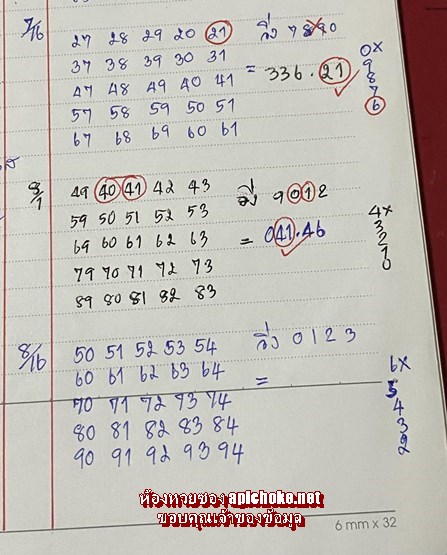 7/16 27 28 29 20 21 วิ่ง 7 8 9 0
37 38 39 30 31 = 336.21 0x
47 48 49 40 41 9
57 58 59 50 51 8
67 68 69 60 61 7
6
8/1 49 40 41 42 43 วิ่ง 9 0 1 2
59 50 51 52 53 4x
69 60 61 62 63 = 041.46 3
79 70 71 72 73 2
89 80 81 82 83 1
0
8/16 50 51 52 53 54 วิ่ง 0 1 2 3
60 61 62 63 64 = 6x
70 71 72 73 74 5
80 81 82 83 84 4
90 91 92 93 94 3
2
ห้องหวยซอง apichoke.net
ขอบคุณเจ้าของข้อมูล
6 mm x 32